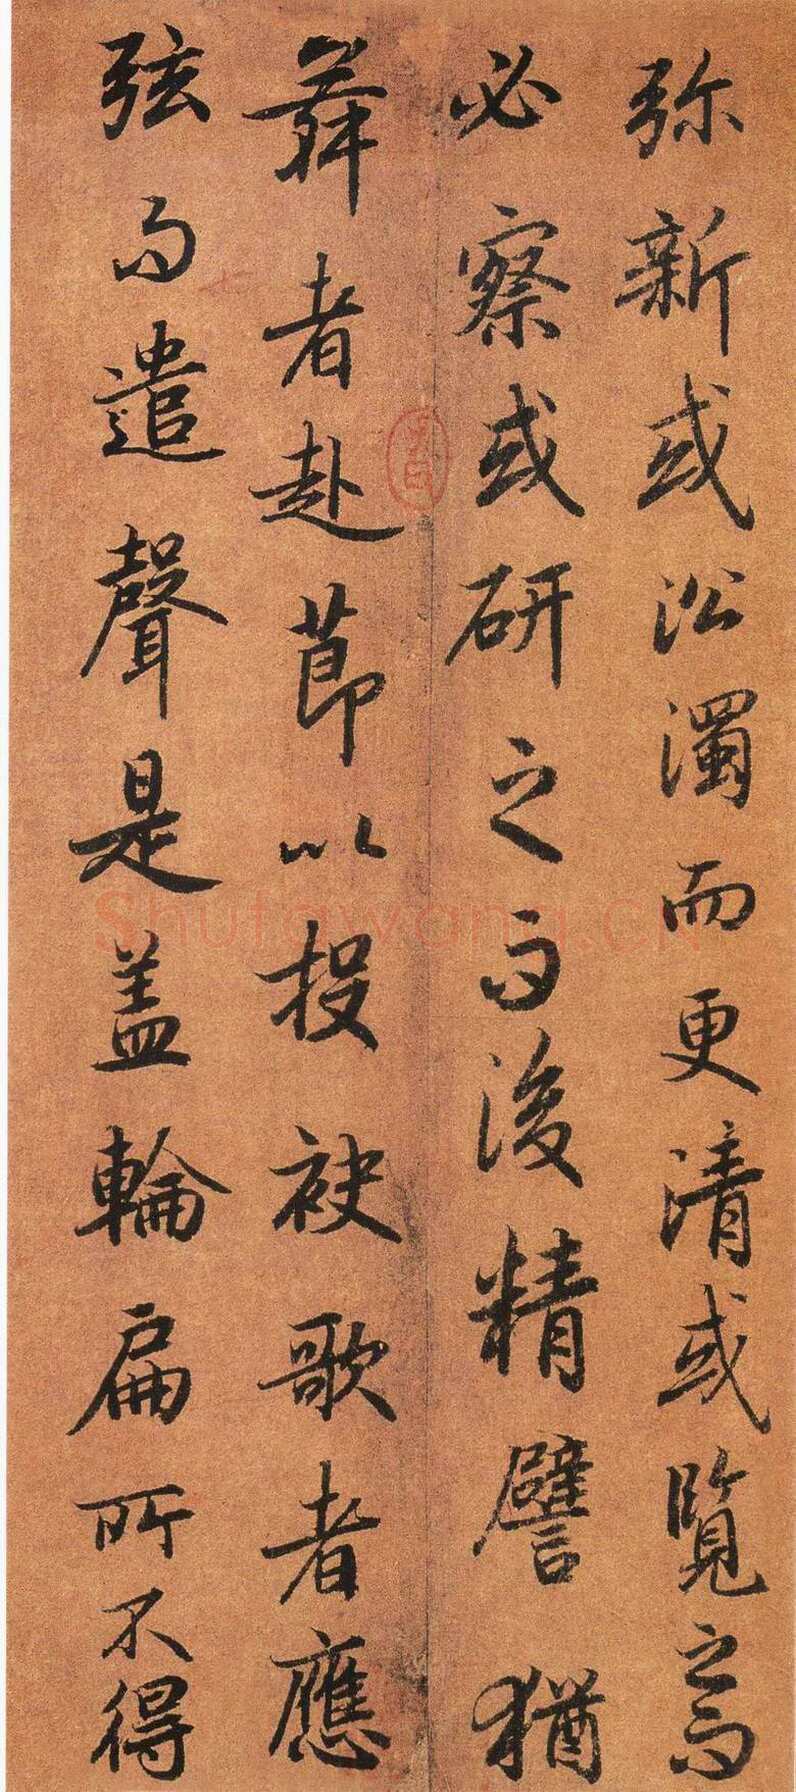 弥新或㳂濁而更清或覽之而
必察或研之而後精譬猶
舞者赴莭以投袂歌者應
弦而遣聲是盖輪扁所不得
Shufawang.CN